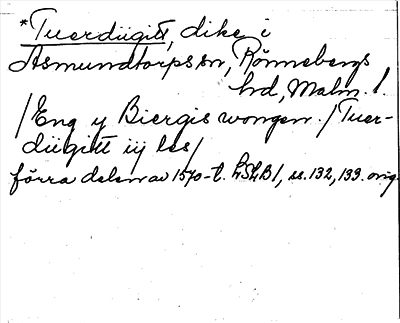 *Tuerdiigitt, dike i
Asmundtorps sn, Rönnebergs
hd, Malm. l.
/Eng y Biergis wongen./Tuer-
diigitt iij les/
förra delen av 1570-t. LSLB1, ss. 132, 133. orig.